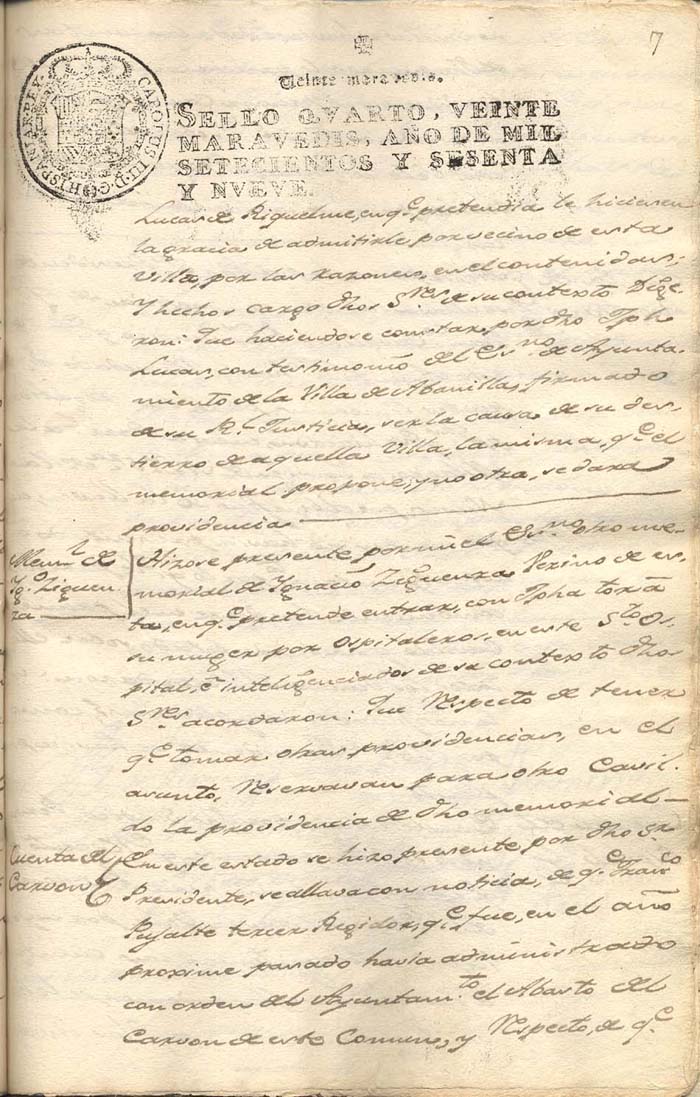 7
CAROLUS III D G HISPANIAR REX
Veinte maravedis.
SELLO QVARTO, VEINTE
MARAVEDIS, AÑO DE MIL
SETECIENTOS Y SESENTA
Y NVEVE.
Lucas de Riquelme, en q.e pretendia le hiciesen
la gracia de admitirle por vecino de esta
Villa, por las razones, en el contenidas;
Y hechos cargo dhos S.res de su contexto Dige-
ron: Que haciendose constar, por dho Jph
Lucas, con testimonio del Es.no de Ayunta-
miento de la Villa de Abanilla, firmado
de su R.l Justicia, ser la causa de su des-
tierro de aquella Villa, la misma, q.e el
memorial propone, y no otra, se dara
providencia
Mem.l de
Yg.o Ziguen
za
Hizose presente por mi el Es.no otro me-
morial de Ygnacio Ziguenza Vecino de es-
ta, en q.e pretende entrar, con Jpha
su muger por Ospitaleros, en este S.to Os-
pital, é inteligenciados de su contexto dhos
S.res acordaron: Que Respecto de tener
q.e tomar otras providencias, en el
asunto, Reservavan para otro Cavil-
do la providencia de dho memorial
Cuenta del
Carvon
En este estado se hizo presente por dho S.r
Presidente, se allava con noticia, de q.e Fran.co
Pujalte tercer Regidor, q.e fue, en el año
proxime pasado havia administrado
con orden del Ayuntam.to el Abasto del
Carvon de este Comun, y Respecto, de q.e